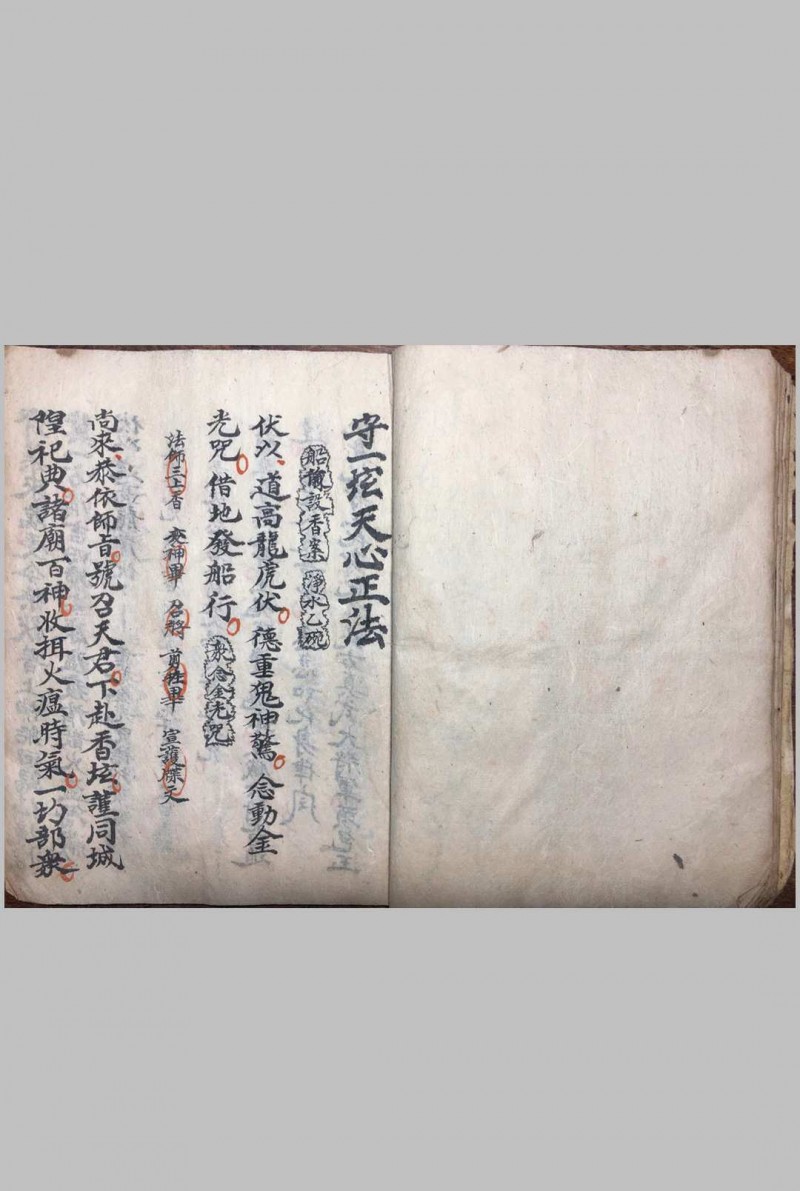 守一坛天心正法
船前設香案 淨水乙碗
伏以道高龍虎伏德重鬼神驚念動金
光咒借地發船行 衆念金光咒
法師三上香 神畢 召將 畢 宣護牒天
尚來恭依師旨號召天君下赴香坛護同城
隍祀典諸廟百神收捐火瘟時氣一切部衆